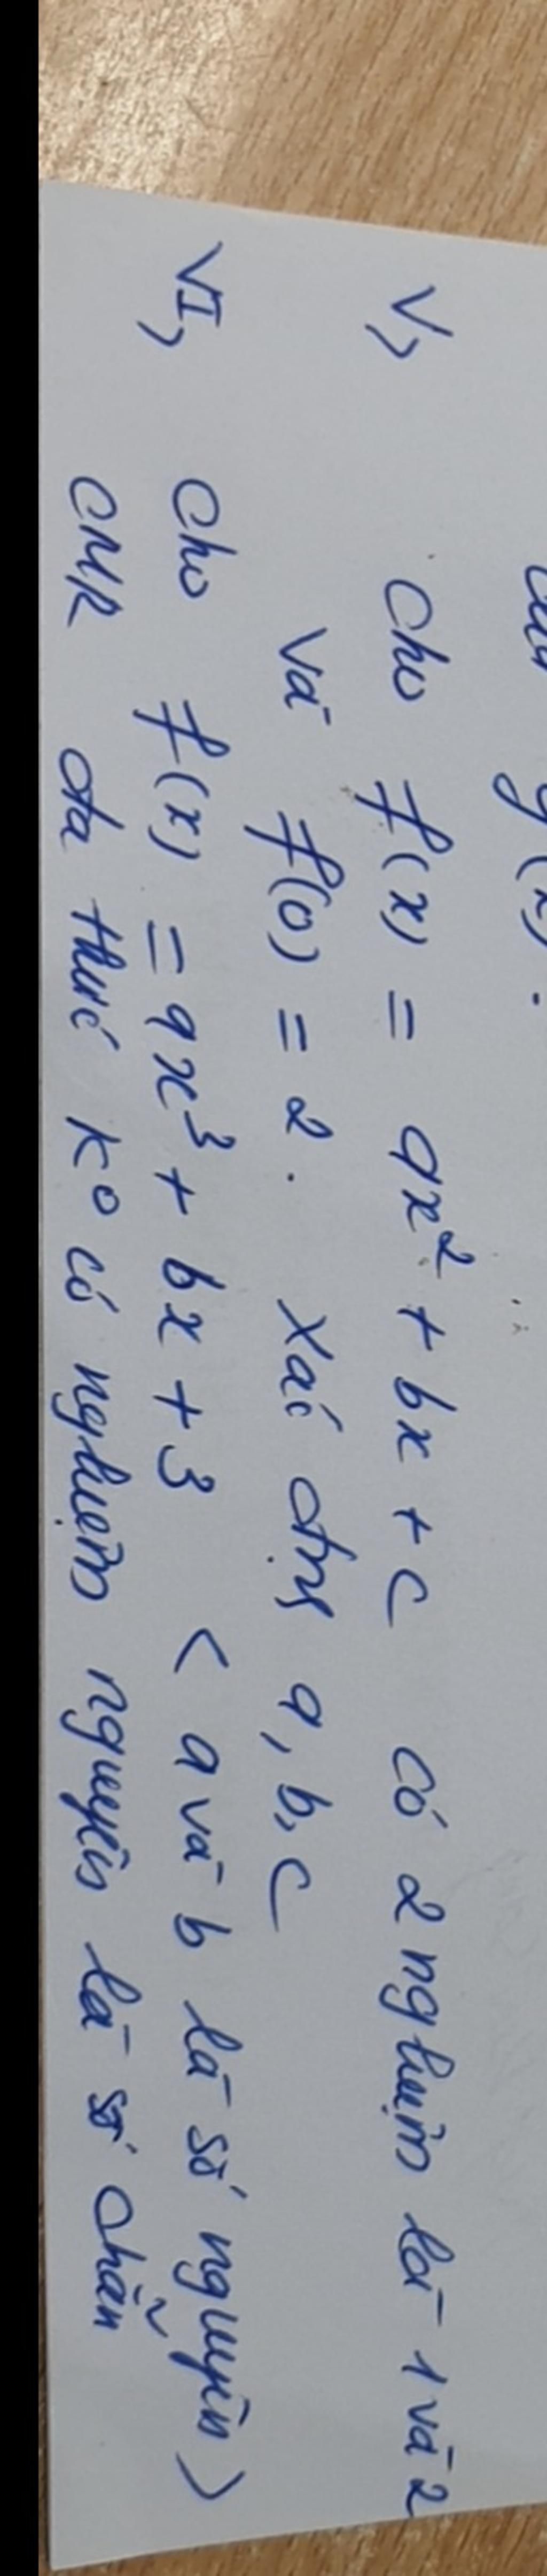 y(x).
V, Cho f(x) = ax² + bx + c có 2 nghiệm là 1 và 2
và f(0) = 2. Xác định a, b, c
VI, Cho f(x) = ax³ + bx + 3 < a và b là số nguyên >
CMR đa thức ko có nghiệm nguyên là số chẵn